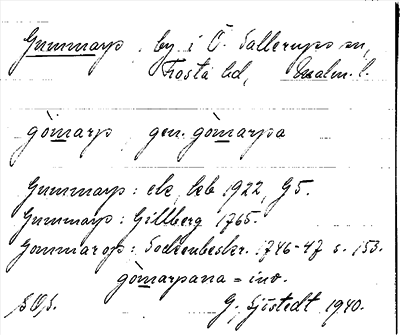 Gummarp, by i Ö. Sallerups sn,
Frosta hd, Malm. l.
gòmarp, gen. gòmarpa
Gummarp: ek, kb 1922, G5.
Gummarp: Gillberg 1765.
Gommarop: Sockenbeskr. 1746-47 s. 153.
gòmarpana = inv.
G. Sjöstedt 1940.